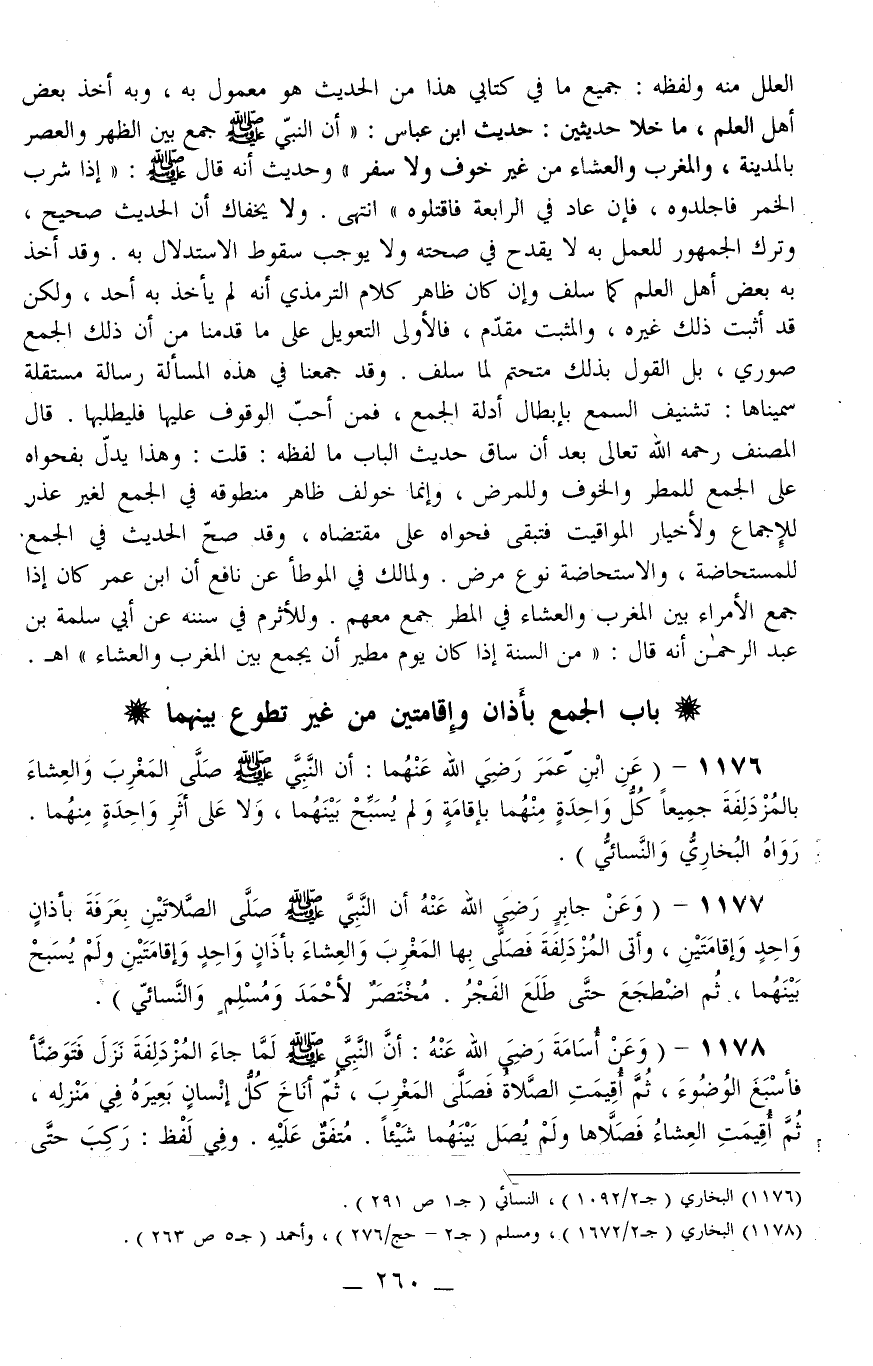 العلل منه ولفظه : جميع ما في كتابي هذا من الحديث هو معمول به ، وبه أخذ بعض
أهل العلم ، ما خلا حديثين : حديث ابن عباس : « أن النبيّ ﷺ جمع بين الظهر والعصر
بالمدينة ، والمغرب والعشاء من غير خوف ولا سفر » وحديث أنه قال ﷺ : « إذا شرب
الخمر فاجلدوه ، فإن عاد في الرابعة فاقتلوه » انتهى . ولا يخفاك أن الحديث صحيح ،
وترك الجمهور للعمل به لا يقدح في صحته ولا يوجب سقوط الاستدلال به . وقد أخذ
به بعض أهل العلم كما سلف وإن كان ظاهر كلام الترمذي أنه لم يأخذ به أحد ، ولكن
قد أثبت ذلك غيره ، والمثبت مقدّم ، فالأولى التعويل على ما قدمنا من أن ذلك الجمع
صوري ، بل القول بذلك متحتم لما سلف . وقد جمعنا في هذه المسألة رسالة مستقلة
سميناها : تشنيف السمع بإبطال أدلة الجمع ، فمن أحبّ الوقوف عليها فليطلبها . قال
المصنف رحمه الله تعالى بعد أن ساق حديث الباب ما لفظه : قلت : وهذا يدلّ بفحواه
على الجمع للمطر والخوف وللمرض ، وإنما خولف ظاهر منطوقه في الجمع لغير عذر
للإجماع ولأخيار المواقيت فتبقى فحواه على مقتضاه ، وقد صحّ الحديث في الجمع
للمستحاضة ، والاستحاضة نوع مرض . ولمالك في الموطأ عن نافع أن ابن عمر كان إذا
جمع الأمراء بين المغرب والعشاء في المطر جمع معهم . وللأثرم في سننه عن أبي سلمة بن
عبد الرحمٰن أنه قال : « من السنة إذا كان يوم مطير أن يجمع بين المغرب والعشاء » اهـ .
باب الجمع بأذان وإقامتين من غير تطوع بينهما
١١٧٦ – ( عَنِ ابْنِ عُمَرَ رَضِيَ الله عَنْهُما : أن النَّبِيَّ ﷺ صَلَّى المَغْرِبَ وَالعِشاءَ
بالمُزْدَلِفَةَ جمِيعاً كُلُّ وَاحِدَةٍ مِنْهُما بإقامَةٍ وَلم يُسَبِّحْ بَيْنَهُما ، وَلا عَلى أثَرِ وَاحِدَةٍ مِنهُما .
رَوَاهُ البُخارِيُّ وَالنَّسائيُّ ) .
١١٧٧ – ( وَعَنْ جابِرٍ رَضيَ الله عَنْهُ أن النَّبِيَّ ﷺ صَلَّى الصَّلاتَيْنِ بِعَرَفَةَ بأذانٍ
وَاحِدٍ وَإقامَتَيْنِ ، وأتى المُزْدَلِفَةَ فَصَلَّى بِها المَغْرِبَ وَالعِشاءَ بأذَانٍ وَاحِدٍ وَإقامَتَيْنِ ولَمْ يُسَبحْ
بَيْنَهُما ، ثُم اضْطجَعَ حتَّى طَلَعَ الفَجْرُ . مُخْتَصَرٌ لأحْمَدَ وَمُسْلِمٍ وَالنَّسائيّ ) .
١١٧٨ – ( وَعَنْ أُسَامَةَ رَضِيَ الله عَنْهُ : أنَّ النَّبِيَّ ﷺ لَمَّا جاءَ المُزْدَلِفَةَ نَزَلَ فَتَوَضَّأ
فأسْبَغَ الوُضُوءَ ، ثُمَّ أُقِيمَتِ الصَّلاةُ فَصَلَّى المَغْرِبَ ، ثُمّ أناخَ كُلُّ إنْسانٍ بَعِيرَهُ فِي مَنْزِلِه ،
ثُمَّ أُقِيمَتِ العِشاءُ فَصَلَّاها ولَمْ يُصَل بَيْنَهُما شَيْئاً . مُتفَقٌ عَلَيْهِ . وفِي لَفْظ : رَكِبَ حتَّى
(١١٧٦) البخاري ( جـ٢/١٠٩٢ ) ، النسائي ( جـ١ ص ٢٩١ ) .
(١١٧٨) البخاري ( جـ٢/١٦٧٢ ) ، ومسلم ( جـ٢ – حج/٢٧٦ ) ، وأحمد ( جـ٥ ص ٢٦٣ ) .
– ٢٦٠ –